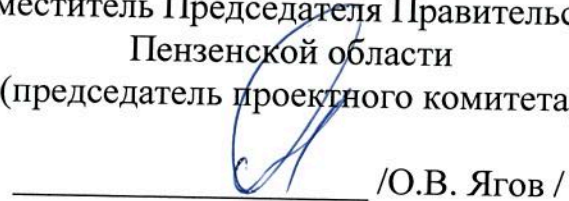 меститель Председателя Правительс
Пензенской области
(председатель проектного комитета
/О.В. Ягов /